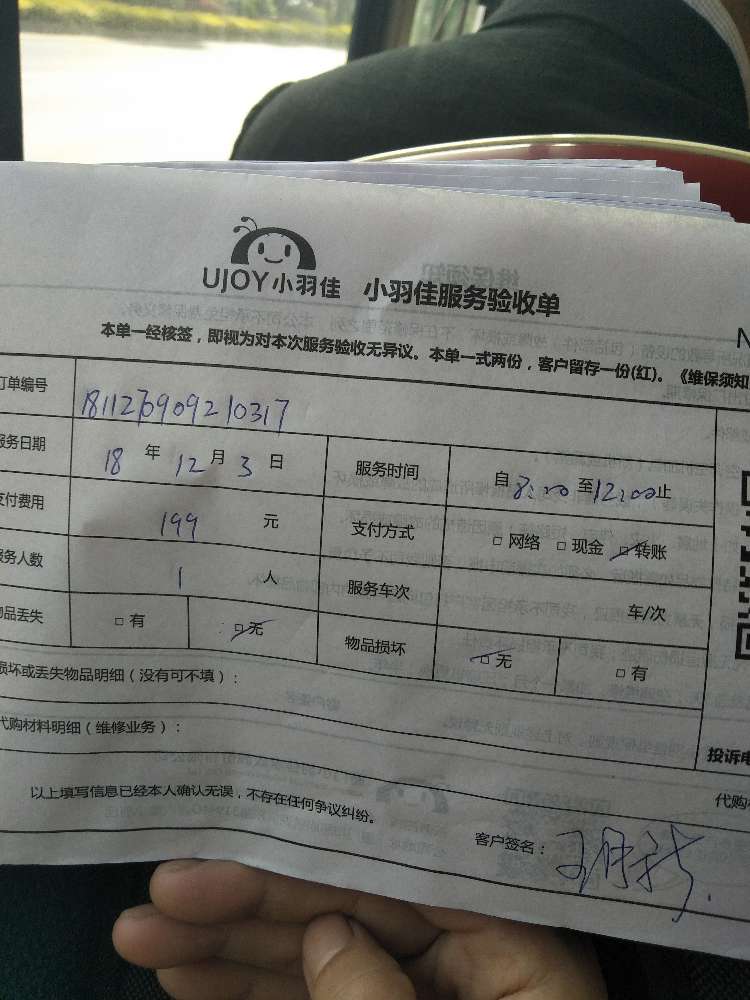 UJOY小羽佳 小羽佳服务验收单
N
本单一经核签，即视为对本次服务验收无异议。本单一式两份，客户留存一份(红)。《维保须知
订单编号 1811270909210317
服务日期 18 年 12 月 3 日 服务时间 自 8:00 至 12:00 止
支付费用 199 元 支付方式 □ 网络 □ 现金 □ 转账
服务人数 1 人 服务车次 车/次
物品丢失 □ 有 □ 无 物品损坏 □ 无 □ 有
损坏或丢失物品明细（没有可不填）：
代购材料明细（维修业务）：
投诉电
代购
以上填写信息已经本人确认无误，不存在任何争议纠纷。
客户签名：